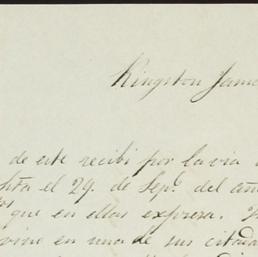 Kingston Jama
de este recibi por la via
el 29. de Sep.º del añ
que en ellas expresa.
vino en una de sus citada